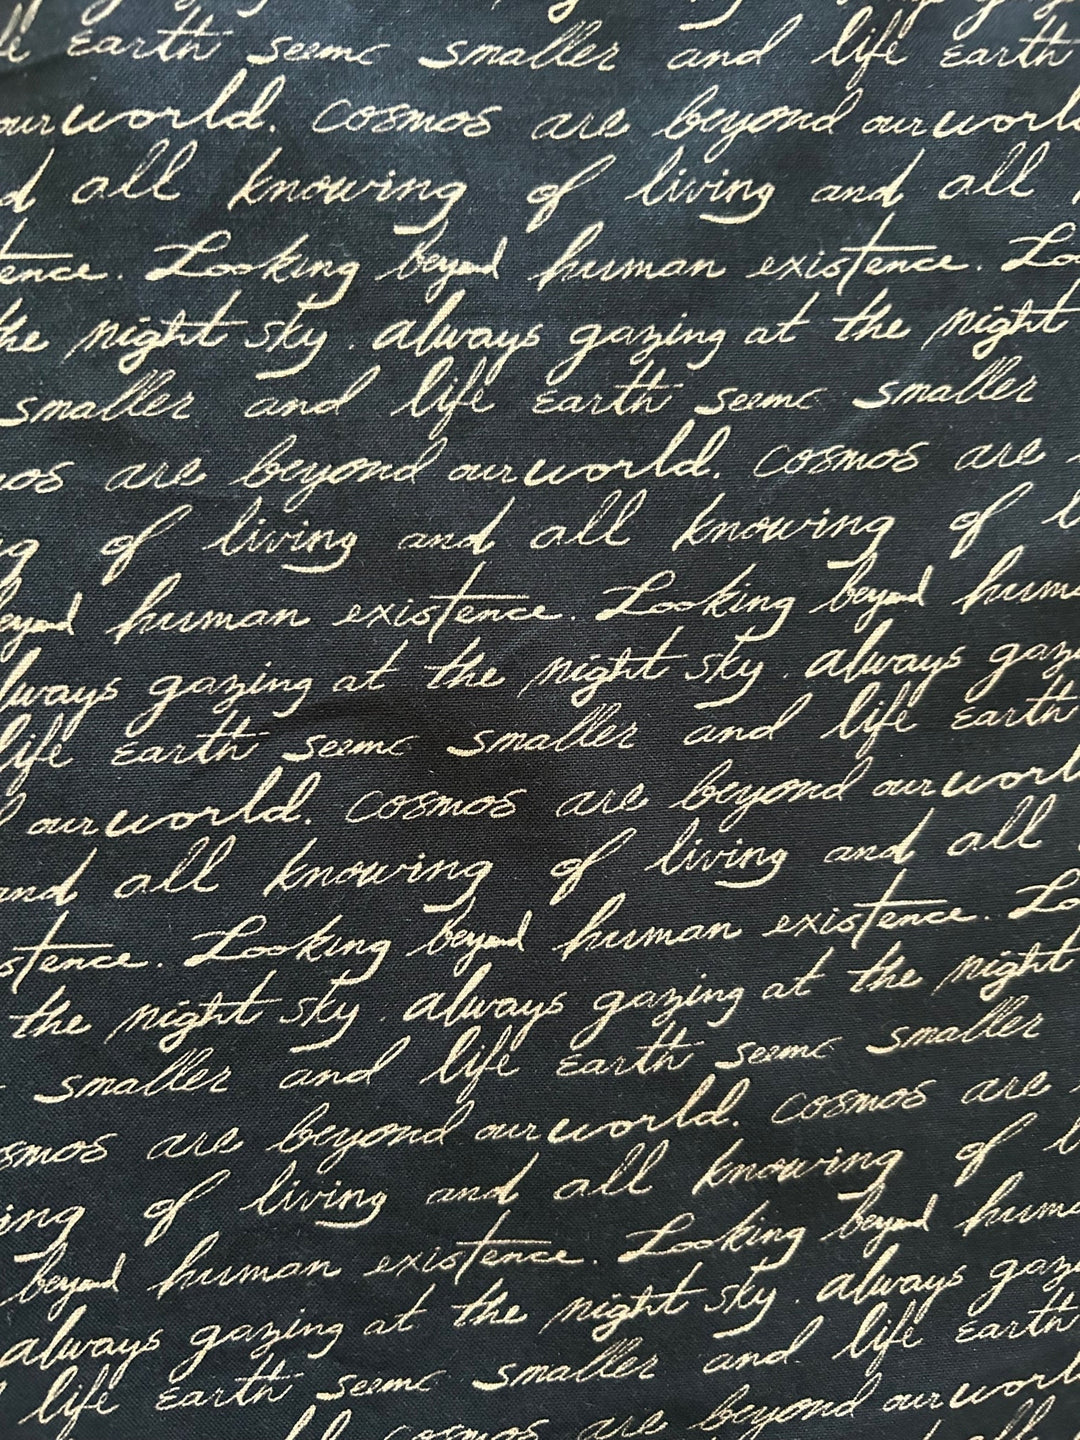 Earth seems smaller and life earth
our world. cosmos are beyond our world
all knowing of living and all
Looking beyond human existence.
the night sky. always gazing at the night
smaller and life Earth seems smaller
are beyond our world. cosmos are
of living and all knowing of
beyond human existence. Looking beyond
always gazing at the night sky. always
life Earth seems smaller and life earth
our world. cosmos are beyond our world
and all knowing of living and all
Looking beyond human existence.
the night sky. always gazing at the night
smaller and life Earth seems smaller
cosmos are beyond our world. cosmos are
of living and all knowing of
beyond human existence. Looking beyond
always gazing at the night sky. always
life Earth seems smaller and life earth
cosmos are beyond our world